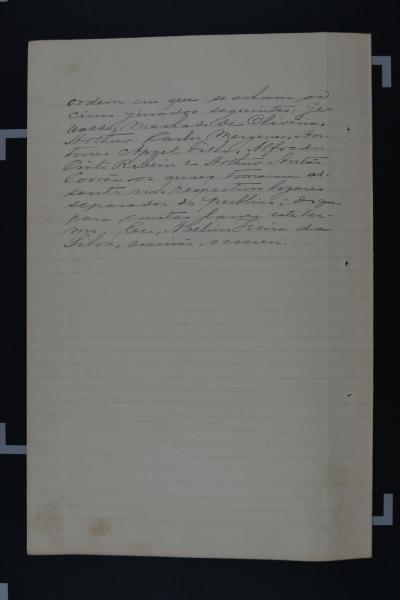 ordem em que se acham os
cinco jurados seguintes: Ge-
valdo Machado de Oliveira,
Arthur Carlos Mergener, An-
tonio Appel Filho, Alfredo
Pinto Ribeiro e Arthur
Corrêa os quaes tomaram as-
sento nos respectivos logares
separados do publico; do que
para constar lavrei este ter-
mo. Eu, da
Silva, escrivão, o escrevi.